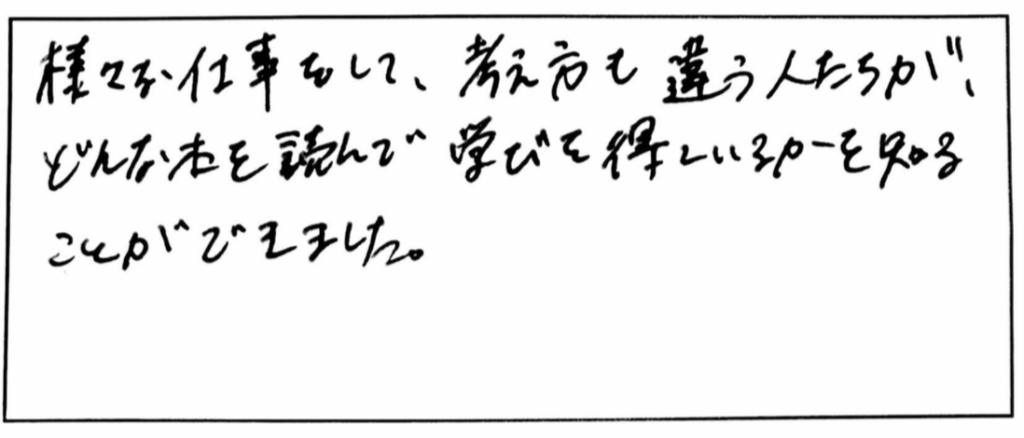 様々な仕事をして、考え方も違う人たちが、
どんな本を読んで学びを得ているかーを知る
ことができました。